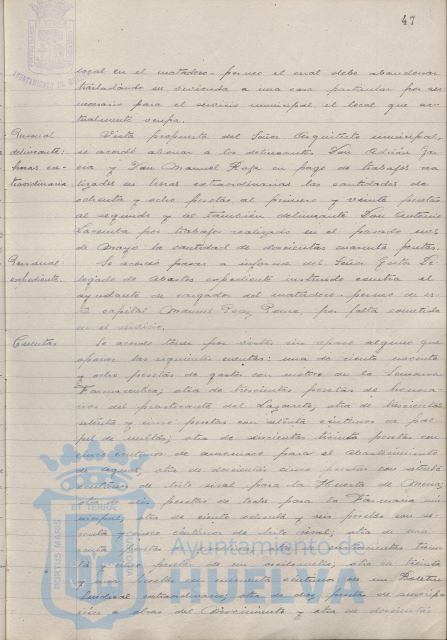 47
local en el matadero-porneo el cual debe abandonar
trasladando su vivienda a una casa particular por ser
necesario para el servicio municipal el local que ac-
tualmente ocupa.
Personal
delineante:
horas ex-
traordinarias
Vista propuesta del Señor Arquitecto municipal,
se acordó abonar a los delineantes Don Adrián Gar-
cia y Don Manuel Raja en pago de trabajos rea-
lizados en horas extraordinarias las cantidades de
ochenta y ocho pesetas al primero y veinte pesetas
al segundo y al también delineante Don Antonio
Lacunha por trabajos realizados en el pasado mes
de Mayo la cantidad de doscientas cuarenta pesetas.
Personal:
expediente.
Se acordó pasar a informe del Señor Gestor De-
legado de Abastos expediente instruido contra el
ayudante de cargador del matadero-porneo de es-
ta capital Manuel Perez Ponce, por falta cometida
en el servicio.
Cuentas
Se acordó tener por vistas sin reparo alguno que
oponer las siguientes cuentas: una de ciento noventa
y ocho pesetas de gastos con motivo de la Semana
Farmaceutica; otra de trescientas pesetas de honora-
rios del practicante del Lazareto; otra de trescientas
setenta y cinco pesetas con setenta céntimos de pa-
pel de multas; otra de trescientas treinta pesetas con
cinco céntimos de amoniaco para el Abastecimiento
de aguas; otra de doscientas cinco pesetas con setenta
céntimos de hilo sisal para la Huerta de Mena;
otra de seis pesetas de leche para la Farmacia mu-
nicipal; otra de ciento ochenta y seis pesetas con se-
senta y cinco céntimos de hilo sisal; otra de
pesetas trein-
ta y cinco pesetas de un otra de treinta
y pesetas con cincuenta céntimos de un Boletín
Sindical extraordinario; otra de dos pesetas de suscrip-
ción a obras del Descubrimiento y otra de doscientas
Ayuntamiento de
HUELVA
PORTUS MARIS
ET TERRAE